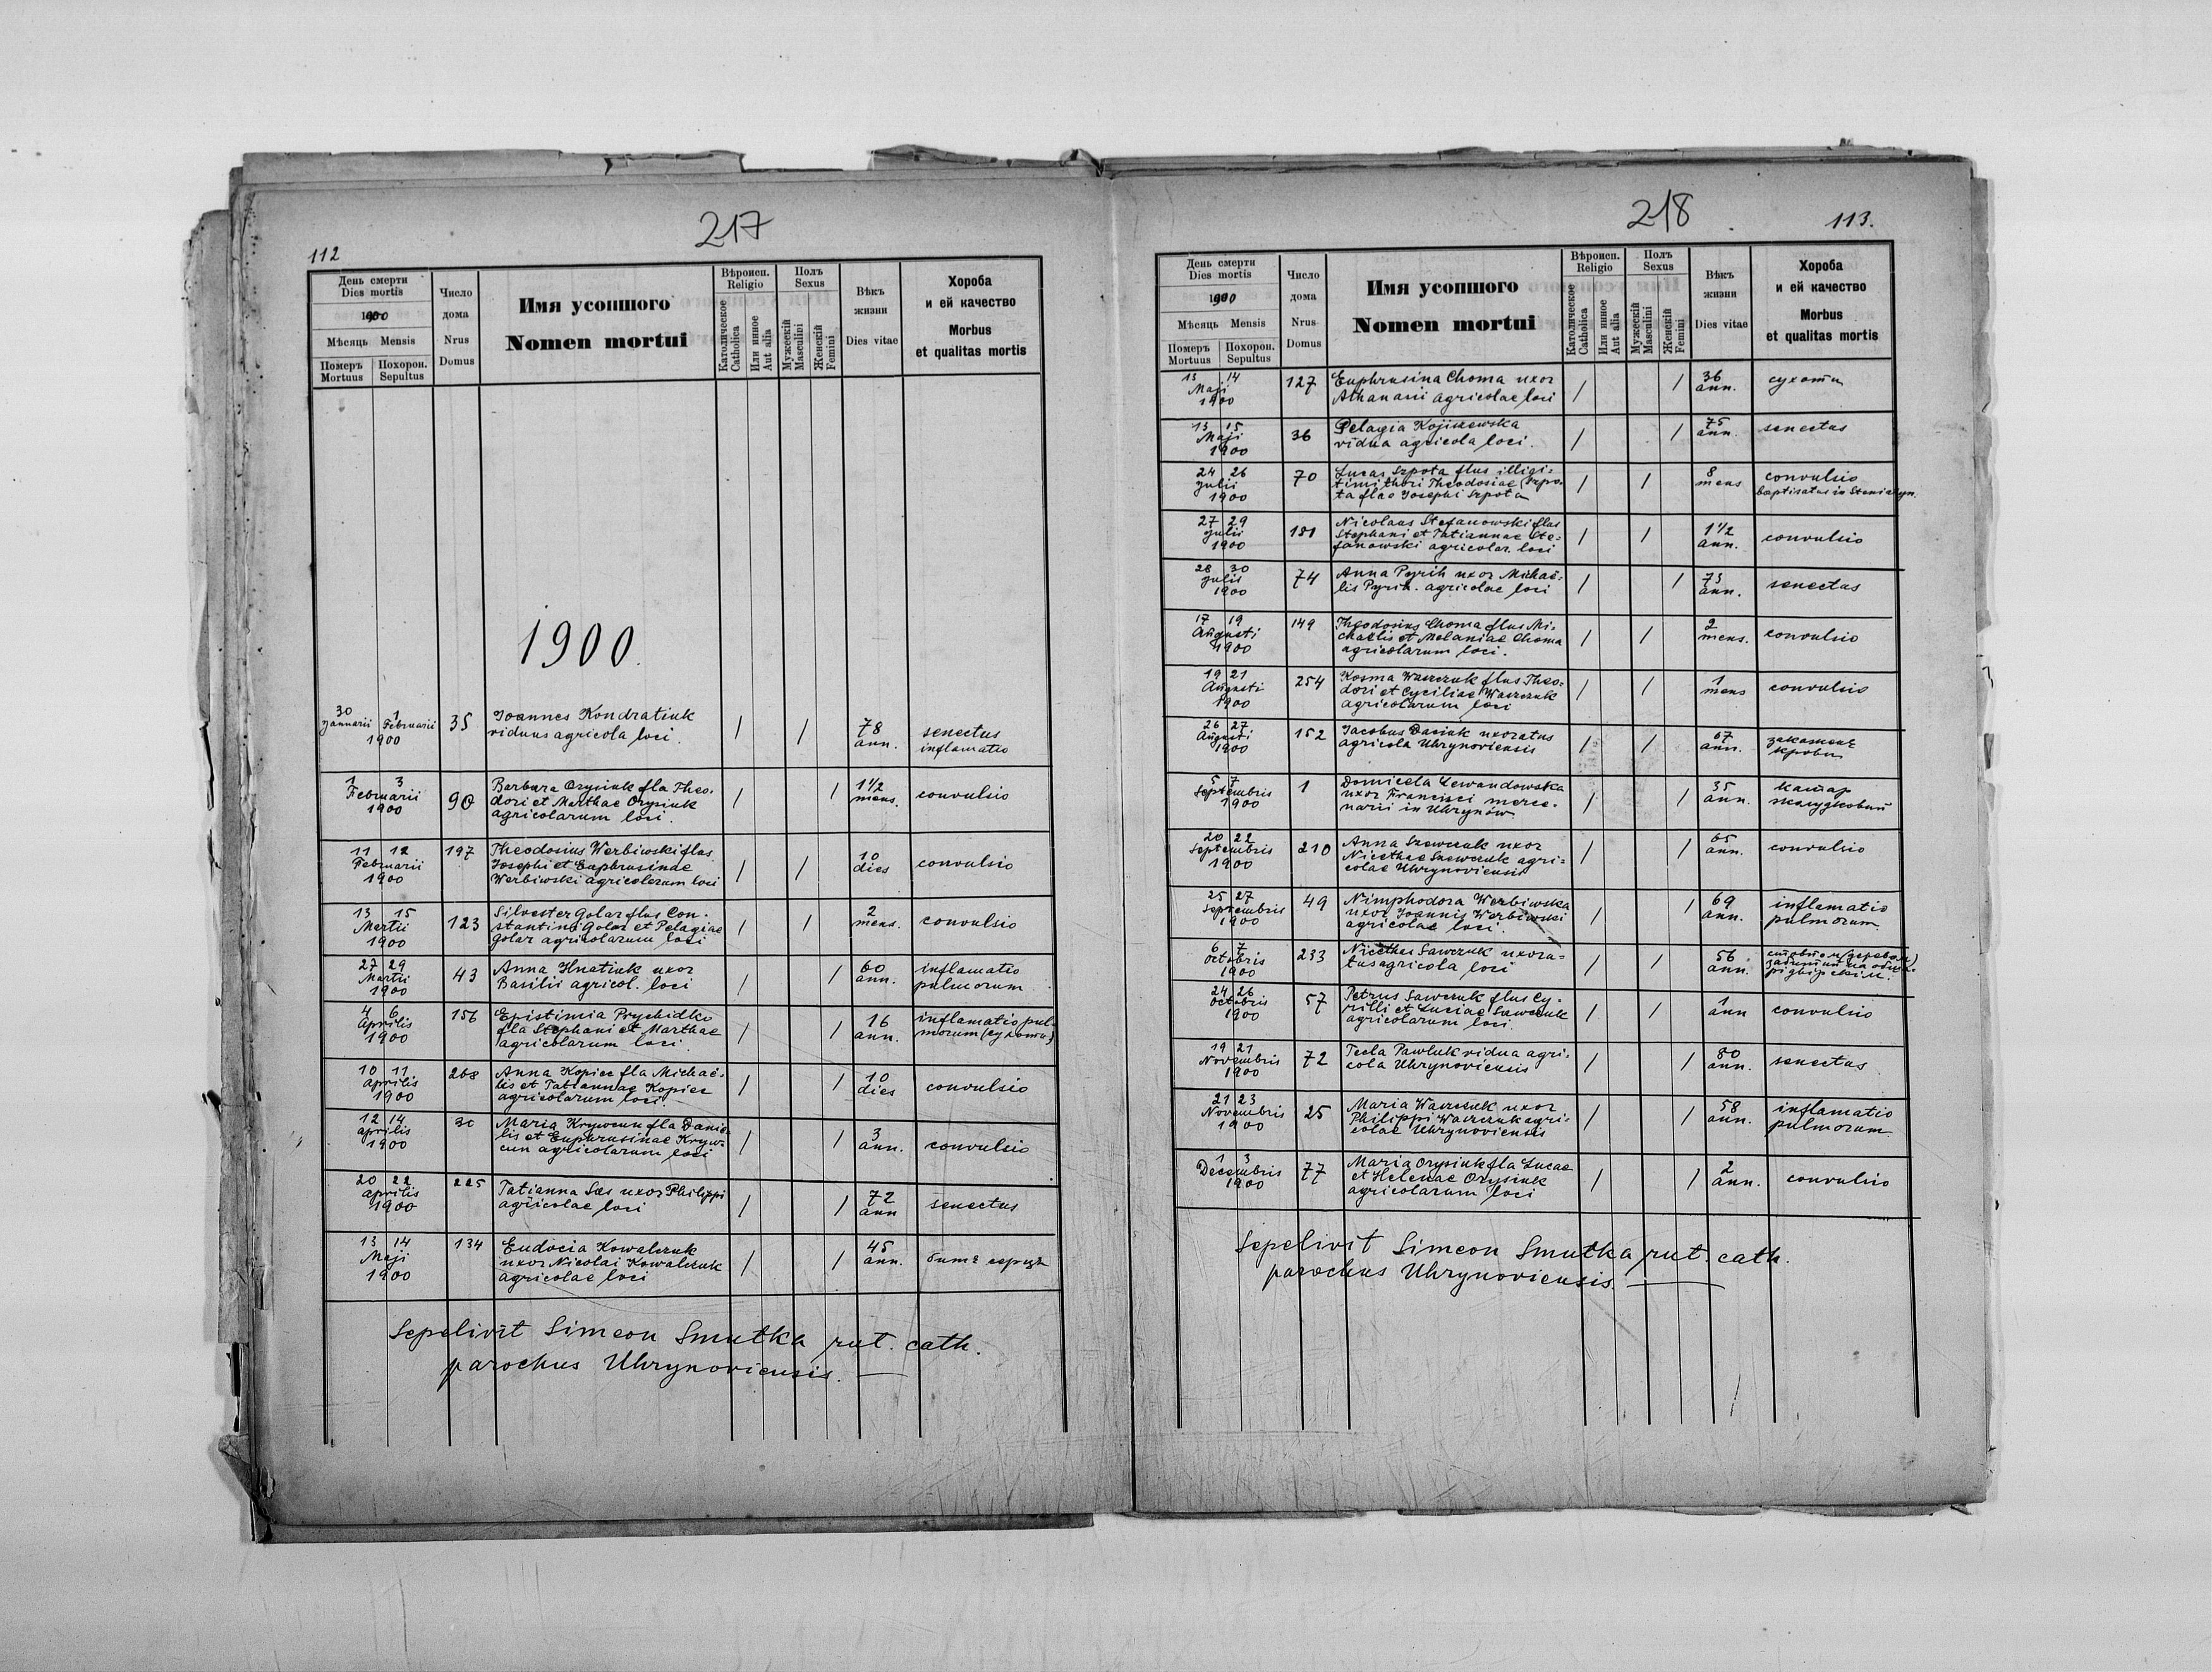 217
112
День смерти
Dies mortis
1900
Мѣсяць Mensis
Померъ Mortuus
Похорон. Sepultus
Число дома
Nrus Domus
Имя усопшого
Nomen mortui
Вѣроисп. Religio
Католическое Catholica
Или инное Aut alia
Полъ Sexus
Мужескій Masculini
Женскій Femini
Вѣкъ жизни
Dies vitae
Хороба и ей качество
Morbus et qualitas mortis
1900.
30 Januarii 1 Februarii 1900 35 Joannes Kondratiuk / / 78 ann. senectus
viduus agricola loci. inflamatio
1 3 Februarii 1900 90 Barbara Orysiuk fla Theo- / / 1 1/2 mens. convulsio
dori et Marthae Orysiuk
agricolarum loci.
11 12 Februarii 1900 197 Theodosius Werbiwski flus / / 10 dies convulsio
Josephi et Euphrusinae
Werbiwski agricolarum loci
13 15 Martii 1900 123 Silvester Golar flus Con- / / 2 mens. convulsio
stantini Golar et Pelagiae
Golar agricolarum loci
27 29 Martii 1900 43 Anna Hnatiuk uxor / / 60 ann. inflamatio
Basilii agricol. loci pulmorum
4 6 Aprilis 1900 156 Epistimia Prychidko / / 16 ann. inflamatio pul-
fla Stephani et Marthae morum (сухоты)
agricolarum loci.
10 11 Aprilis 1900 268 Anna Kopiec fla Michaë- / / 10 dies convulsio
lis et Tatiannae Kopiec
agricolarum loci.
12 14 Aprilis 1900 30 Maria Krywcun fla Danie- / / 3 ann. convulsio
lis et Euphrusinae Kryw-
cun agricolarum loci
20 22 Aprilis 1900 225 Tatianna Sas uxor Philippi / / 72 ann senectus
agricolae loci
13 14 Maji 1900 134 Eudocia Kowalczuk / / 45 ann. битє серця
uxor Nicolai Kowalczuk
agricolae loci
Sepelivit Simeon Smutka rut. cath.
parochus Uhrynoviensis.
218
113.
День смерти
Dies mortis
1900
Мѣсяць Mensis
Померъ Mortuus
Похорон. Sepultus
Число дома
Nrus Domus
Имя усопшого
Nomen mortui
Вѣроисп. Religio
Католическое Catholica
Или инное Aut alia
Полъ Sexus
Мужескій Masculini
Женскій Femini
Вѣкъ жизни
Dies vitae
Хороба и ей качество
Morbus et qualitas mortis
13 14 Maji 1900 127 Euphrusina Choma uxor / / 36 ann. сухоти
Athanasii agricolae loci
13 15 Maji 1900 36 Pelagia Kojiszewska / / 75 ann. senectus
vidua agricola loci.
24 26 Julii 1900 70 Lucas Szpota flus illigi- / / 8 mens convulsio
timi thori Theodosiae Szpo- baptisatus in
ta flae Josephi Szpota
27 29 Julii 1900 181 Nicolaus Stefanowski flus / / 1 1/2 ann. convulsio
Stephani et Tatiannae Ste-
fanowski agricolar. loci
28 30 Julii 1900 74 Anna Pyrih uxor Michaë- / / 73 ann. senectus
lis Pyrih. agricolae loci
17 19 Augusti 1900 149 Theodosius Choma flus Mi- / / 2 mens. convulsio
chaelis et Melaniae Choma
agricolarum loci.
19 21 Augusti 1900 254 Kosma Wawrzuk flus Theo- / / 1 mens convulsio
dori et Cyciliae Wawrzuk
agricolarum loci
26 27 Augusti 1900 152 Jacobus Dasiuk uxoratus / / 67 ann. закаженє
agricola Uhrynoviensis крови
5 7 Septembris 1900 1 Domicela Lewandowska / / 35 ann. катар
uxor Francisci merce- жолудковый
narii in Uhrynów
20 22 Septembris 1900 210 Anna Szewczuk uxor / / 65 ann. convulsio
Nicethae Szewczuk agri-
colae Uhrynoviensis
25 27 Septembris 1900 49 Nimphodora Werbiwska / / 69 ann. inflamatio
uxor Joannis Werbiwski pulmorum
agricolae loci.
6 7 Octobris 1900 233 Nicethas Sawczuk uxora- / / 56 ann.
tus agricola loci
24 26 Octobris 1900 57 Petrus Sawczuk flus Cy- / / 1 ann convulsio
rilli et Luciae Sawczuk
agricolarum loci.
19 21 Novembris 1900 72 Tecla Pawluk vidua agri- / / 80 ann. senectus
cola Uhrynoviensis
21 23 Novembris 1900 25 Maria Wawrzuk uxor / / 58 ann. inflamatio
Philippi Wawrzuk agri- pulmorum.
colae Uhrynoviensis
1 3 Decembris 1900 77 Maria Orysiuk fla Lucae / / 2 ann. convulsio
et Helenae Orysiuk
agricolarum loci
Sepelivit Simeon Smutka rut. cath.
parochus Uhrynoviensis.